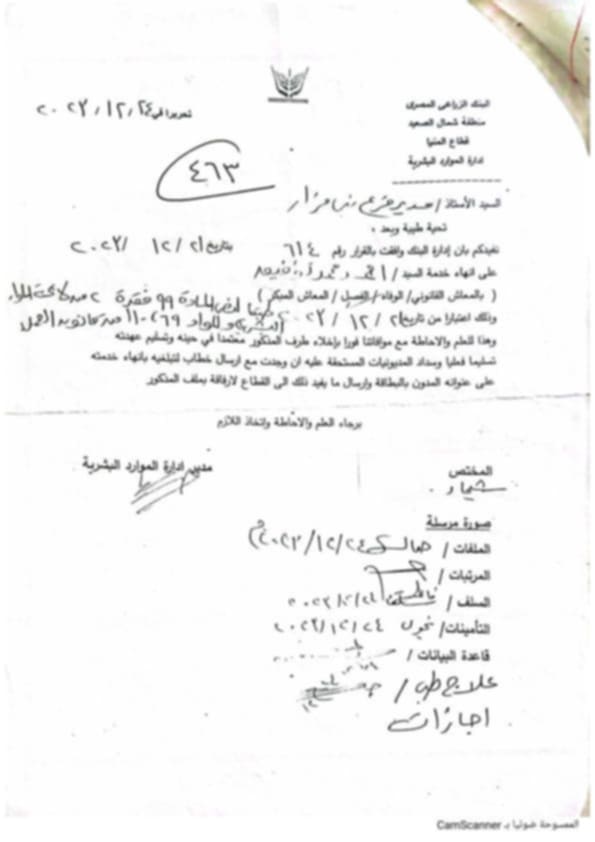 البنك الزراعى المصرى
منطقة شمال الصعيد
قطاع المنيا
ادارة الموارد البشرية
تحريرا فى ٢٤ / ١٢ / ٢٠٢٣
٤٦٣
السيد الأستاذ / مدير فرع بنى مزار
تحية طيبة وبعد ،
نفيدكم بان إدارة البنك وافقت بالقرار رقم ٦١٤ بتاريخ ٢١ / ١٢ / ٢٠٢٣
على انهاء خدمة السيد / احمد
( بالمعاش القانوني / الوفاه / الفصل / المعاش المبكر )
طبقا لنص المادة ٩٩ فقرة ٢ من لائحة الموارد
وذلك اعتبارا من تاريخ ٢١ / ١٢ / ٢٠٢٣
البشرية والمواد ٦٩ ، ١١٠ من قانون العمل
وهذا للعلم والاحاطة مع موافاتنا فورا بإخلاء طرف المذكور معتمدا في حينه وتسليم عهدته
تسليما فعليا وسداد المديونيات المستحقة عليه ان وجدت مع ارسال خطاب لتبلغيه بانهاء خدمته
على عنوانه المدون بالبطاقة وارسال ما يفيد ذلك الى القطاع لارفاقة بملف المذكور.
برجاء العلم والاحاطة وإتخاذ اللازم
المختص
مدير ادارة الموارد البشرية
شيماء
صورة مرسلة
الملفات / ٢٠٢٣/١٢/٢٤
المرتبات /
السلف /
التأمينات / ٢٠٢٣/١٢/٢٤
قاعدة البيانات /
علاج طبى /
اجازات
الممسوحة ضوئيا بـ CamScanner